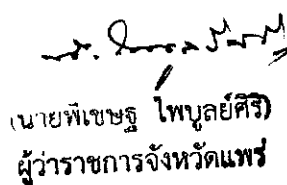 (นายพิเชษฐ ไพบูลย์ศิริ)
ผู้ว่าราชการจังหวัดแพร่